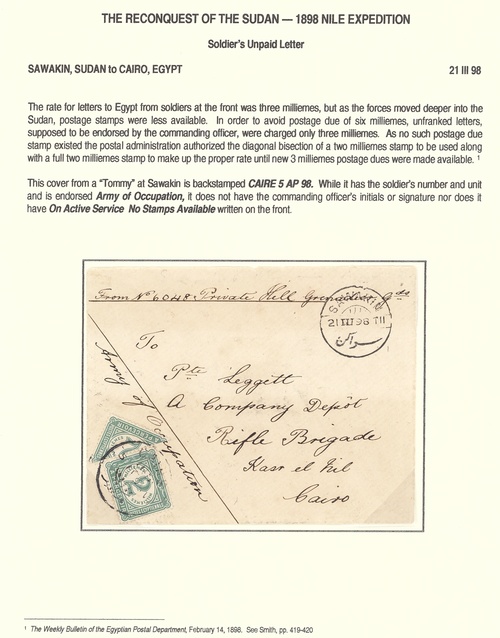 THE RECONQUEST OF THE SUDAN — 1898 NILE EXPEDITION
Soldier's Unpaid Letter
SAWAKIN, SUDAN to CAIRO, EGYPT
21 III 98
The rate for letters to Egypt from soldiers at the front was three milliemes, but as the forces moved deeper into the
Sudan, postage stamps were less available. In order to avoid postage due of six milliemes, unfranked letters,
supposed to be endorsed by the commanding officer, were charged only three milliemes. As no such postage due
stamp existed the postal administration authorized the diagonal bisection of a two milliemes stamp to be used along
with a full two milliemes stamp to make up the proper rate until new 3 milliemes postage dues were made available. 1
This cover from a "Tommy" at Sawakin is backstamped CAIRE 5 AP 98. While it has the soldier's number and unit
and is endorsed Army of Occupation, it does not have the commanding officer's initials or signature nor does it
have On Active Service No Stamps Available written on the front.
From No 6048 Private Hill Grenadier Gds
21 III 98 T11
سواكن
To
Pte Leggett
A Company Depôt
Rifle Brigade
Kasr el Nil
Cairo
Army of Occupation
2
1 The Weekly Bulletin of the Egyptian Postal Department, February 14, 1898. See Smith, pp. 419-420